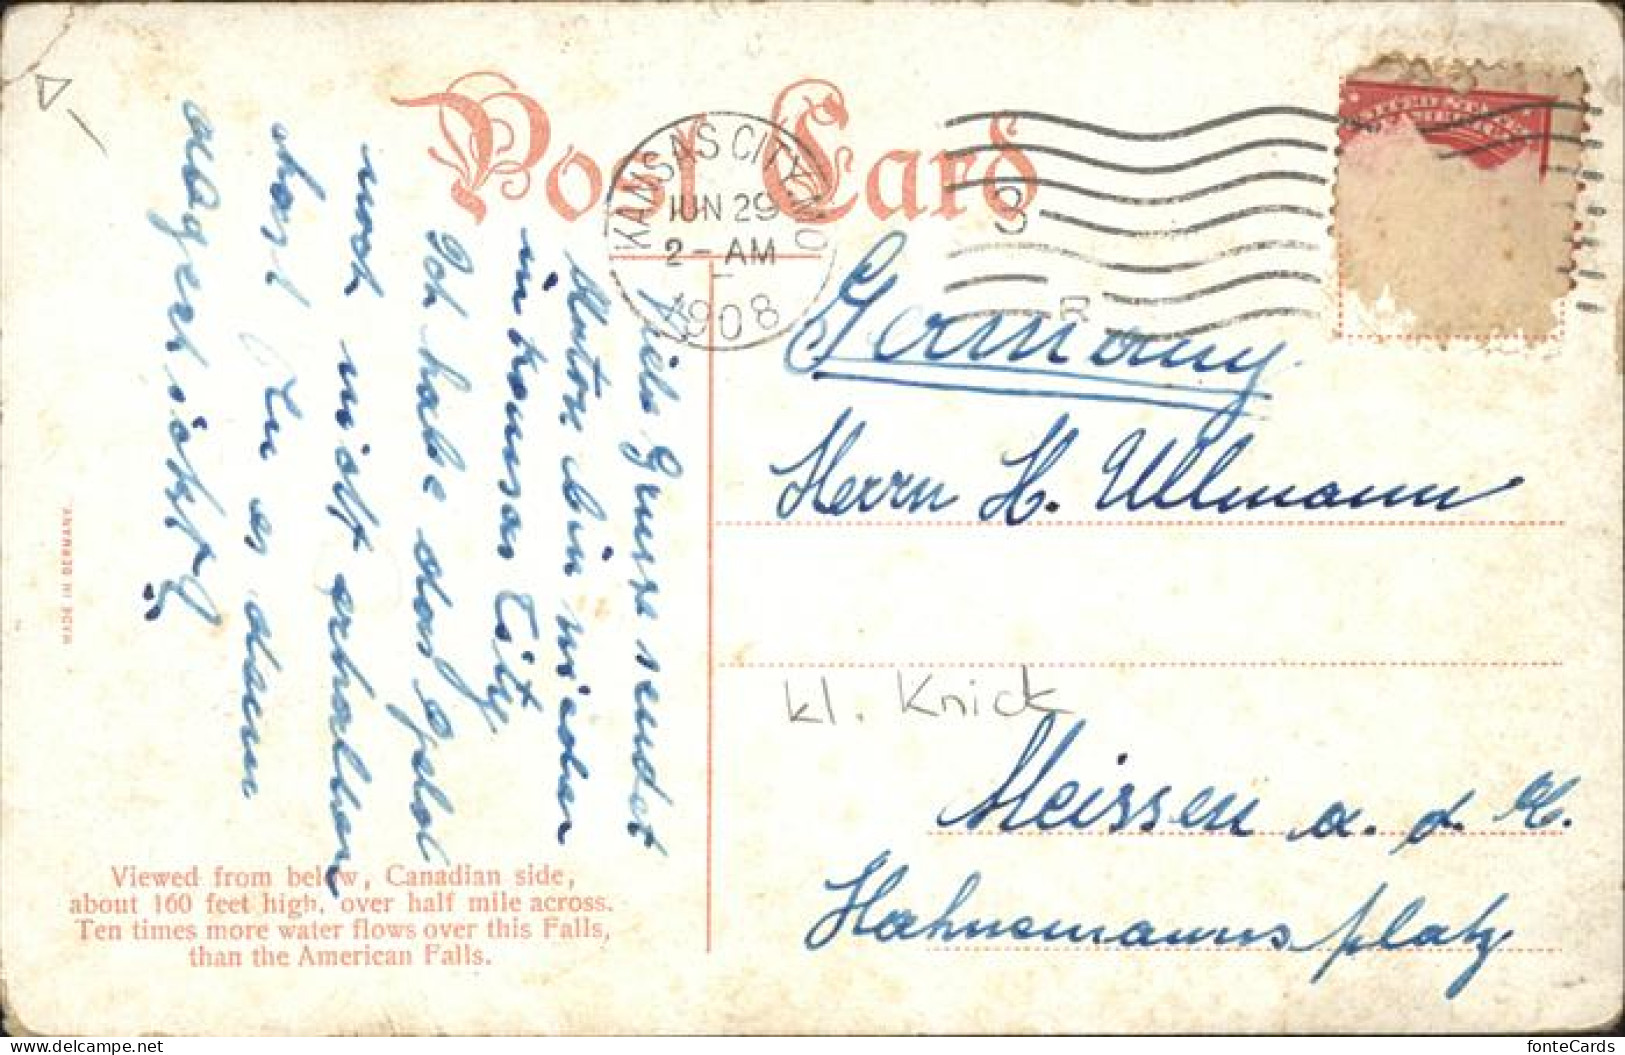 Post Card
KANSAS CITY, MO
JUN 29
2 - AM
1908
3
R
Germany
Herrn H. Ullmann
kl. Knick
Meissen a. d. E.
Hahnemanns platz
Viele Grüsse sendet
bin wieder
in Kansas City
Ich habe das Geld
noch nicht erhalten
hast Du es denn
abgeschickt
Viewed from below, Canadian side,
about 160 feet high, over half mile across.
Ten times more water flows over this Falls,
than the American Falls.
MADE IN GERMANY.
fonteCards